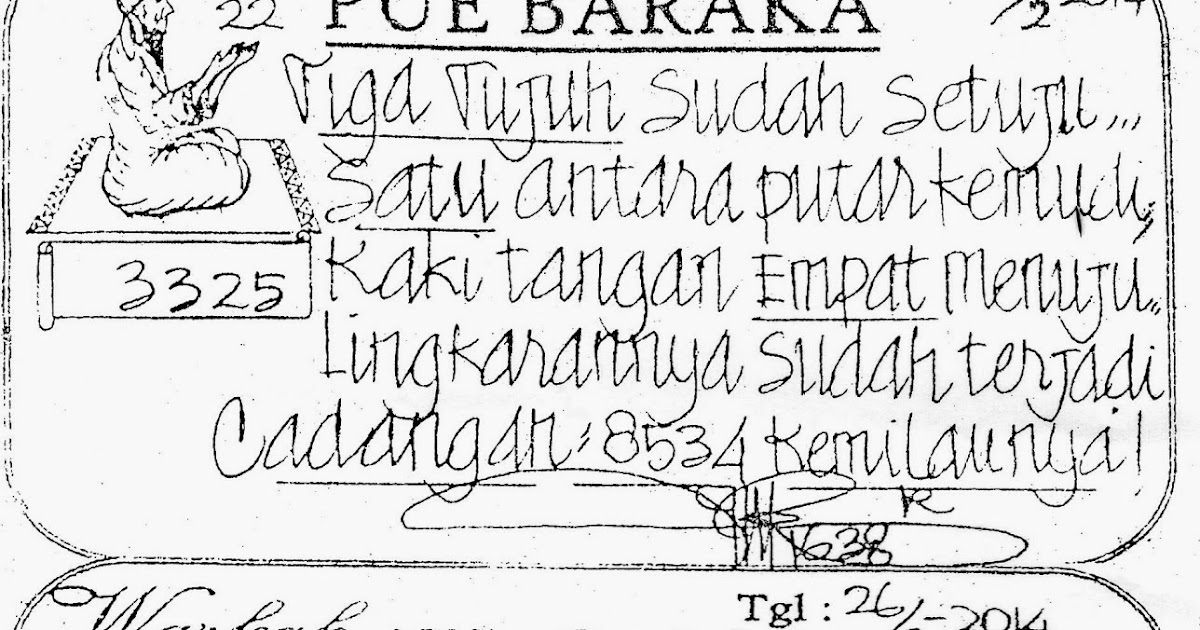 22 PUE BARAKA /2 2014
Tiga Tujuh sudah setuju...
Satu antara putar kemudi,
3325 Kaki tangan Empat menuju..
Lingkarannya sudah terjadi
Cadangan: 8534 kemilaunya!
638
Tgl : 26/ -2014